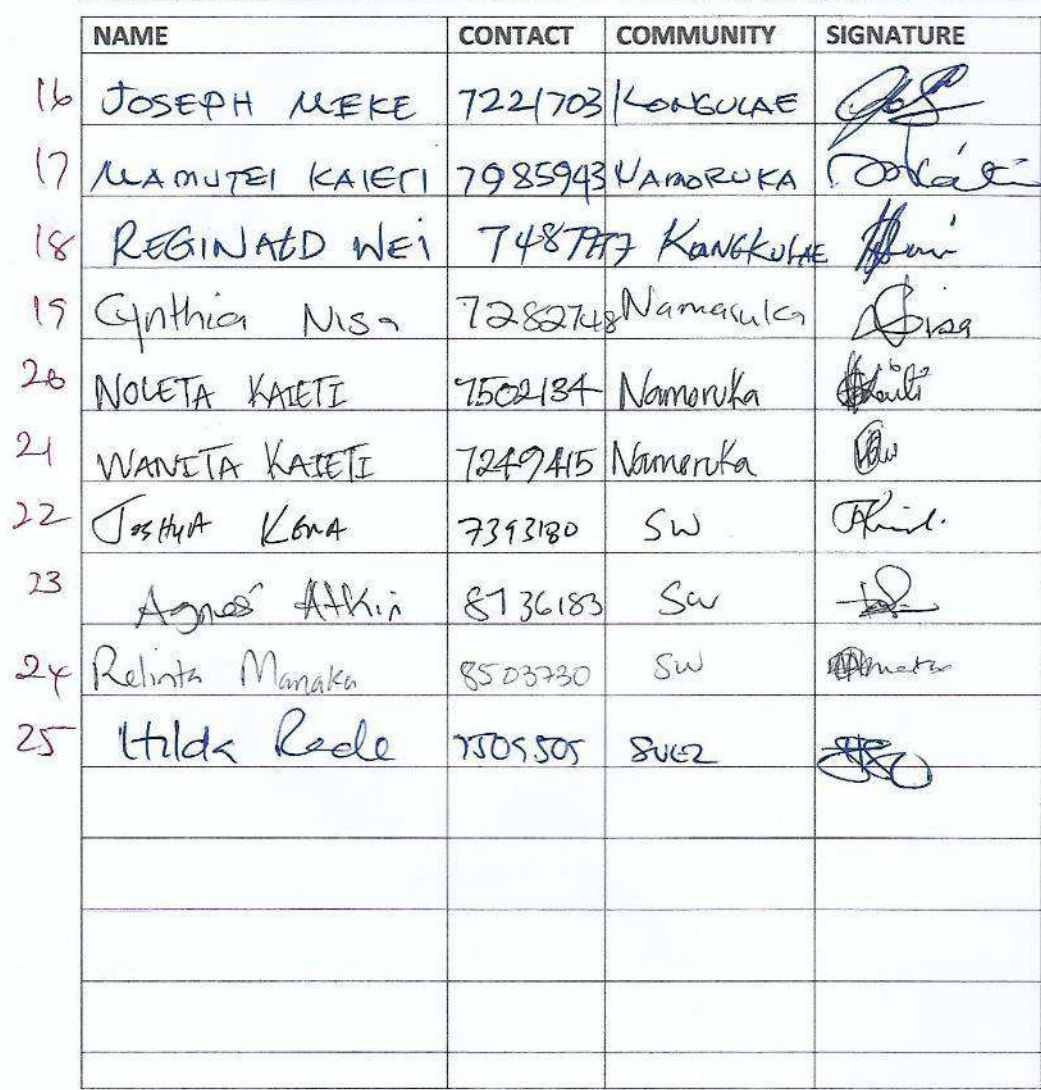 NAME CONTACT COMMUNITY SIGNATURE
16 JOSEPH MEKE 7221703 KONGULAE
17 MAMUTEI KAIETI 7985943 NAMORUKA
18 REGINALD WEI KONGKULAE
19 Cynthia Nisa 7282748 Namasuka Nisa
20 NOLETA KAIETI 7502134 Namoruka
21 WANITA KAIETI 7249415 Namoruka
22 JOSHUA KEMA 7393180 SW
23 Agnes Atkin 8736183 SW
24 Relinta Manaka 8503730 SW
25 Hilda Rade 7509505 SUEZ